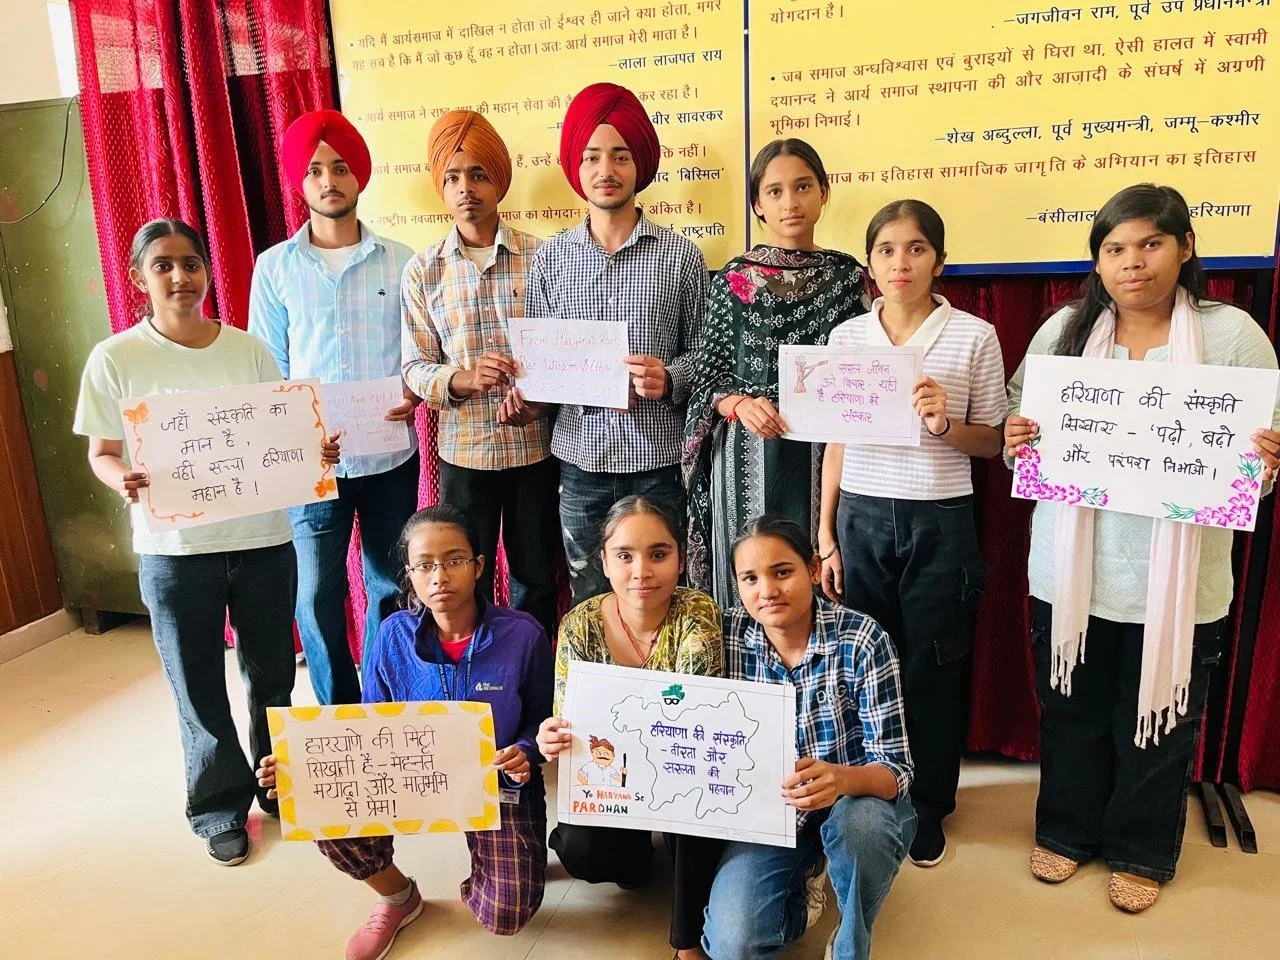 • यदि मैं आर्यसमाज में दाखिल न होता तो ईश्वर ही जाने क्या होता, मगर
यह सच है कि मैं जो कुछ हूँ वह न होता। अतः आर्य समाज मेरी माता है।
–लाला लाजपत राय
आर्य समाज ने राष्ट्र की महान् सेवा की है कर रहा है।
वीर सावरकर
आर्य समाज हैं, उन्हें नहीं।
'बिस्मिल'
• राष्ट्रीय नवजागरण समाज का योगदान में अंकित है।
राष्ट्रपति
योगदान है।
–जगजीवन राम, पूर्व उप प्रधानमन्त्री
• जब समाज अन्धविश्वास एवं बुराइयों से घिरा था, ऐसी हालत में स्वामी
दयानन्द ने आर्य समाज स्थापना की और आज़ादी के संघर्ष में अग्रणी
भूमिका निभाई।
–शेख अब्दुल्ला, पूर्व मुख्यमन्त्री, जम्मू-कश्मीर
समाज का इतिहास सामाजिक जागृति के अभियान का इतिहास
–बंसीलाल हरियाणा
जहाँ संस्कृति का
मान है,
वही सच्चा हरियाणा
महान है!
From Haryana's Roots
Rise Wisdom & Ethics
सरल जीवन
उने विचार - यही
है हरियाणा की
संस्कार
हरियाणा की संस्कृति
सिखाए - 'पढ़ो, बढ़ो
और परंपरा निभाओ।
हारयाणे की मिट्टी
सिखाती है - मेहनत
मर्यादा और मातृभूमि
से प्रेम!
हरियाणा की संस्कृति
- वीरता और
सरलता की
पहचान
Yo HARYANA Se
PARDHAN